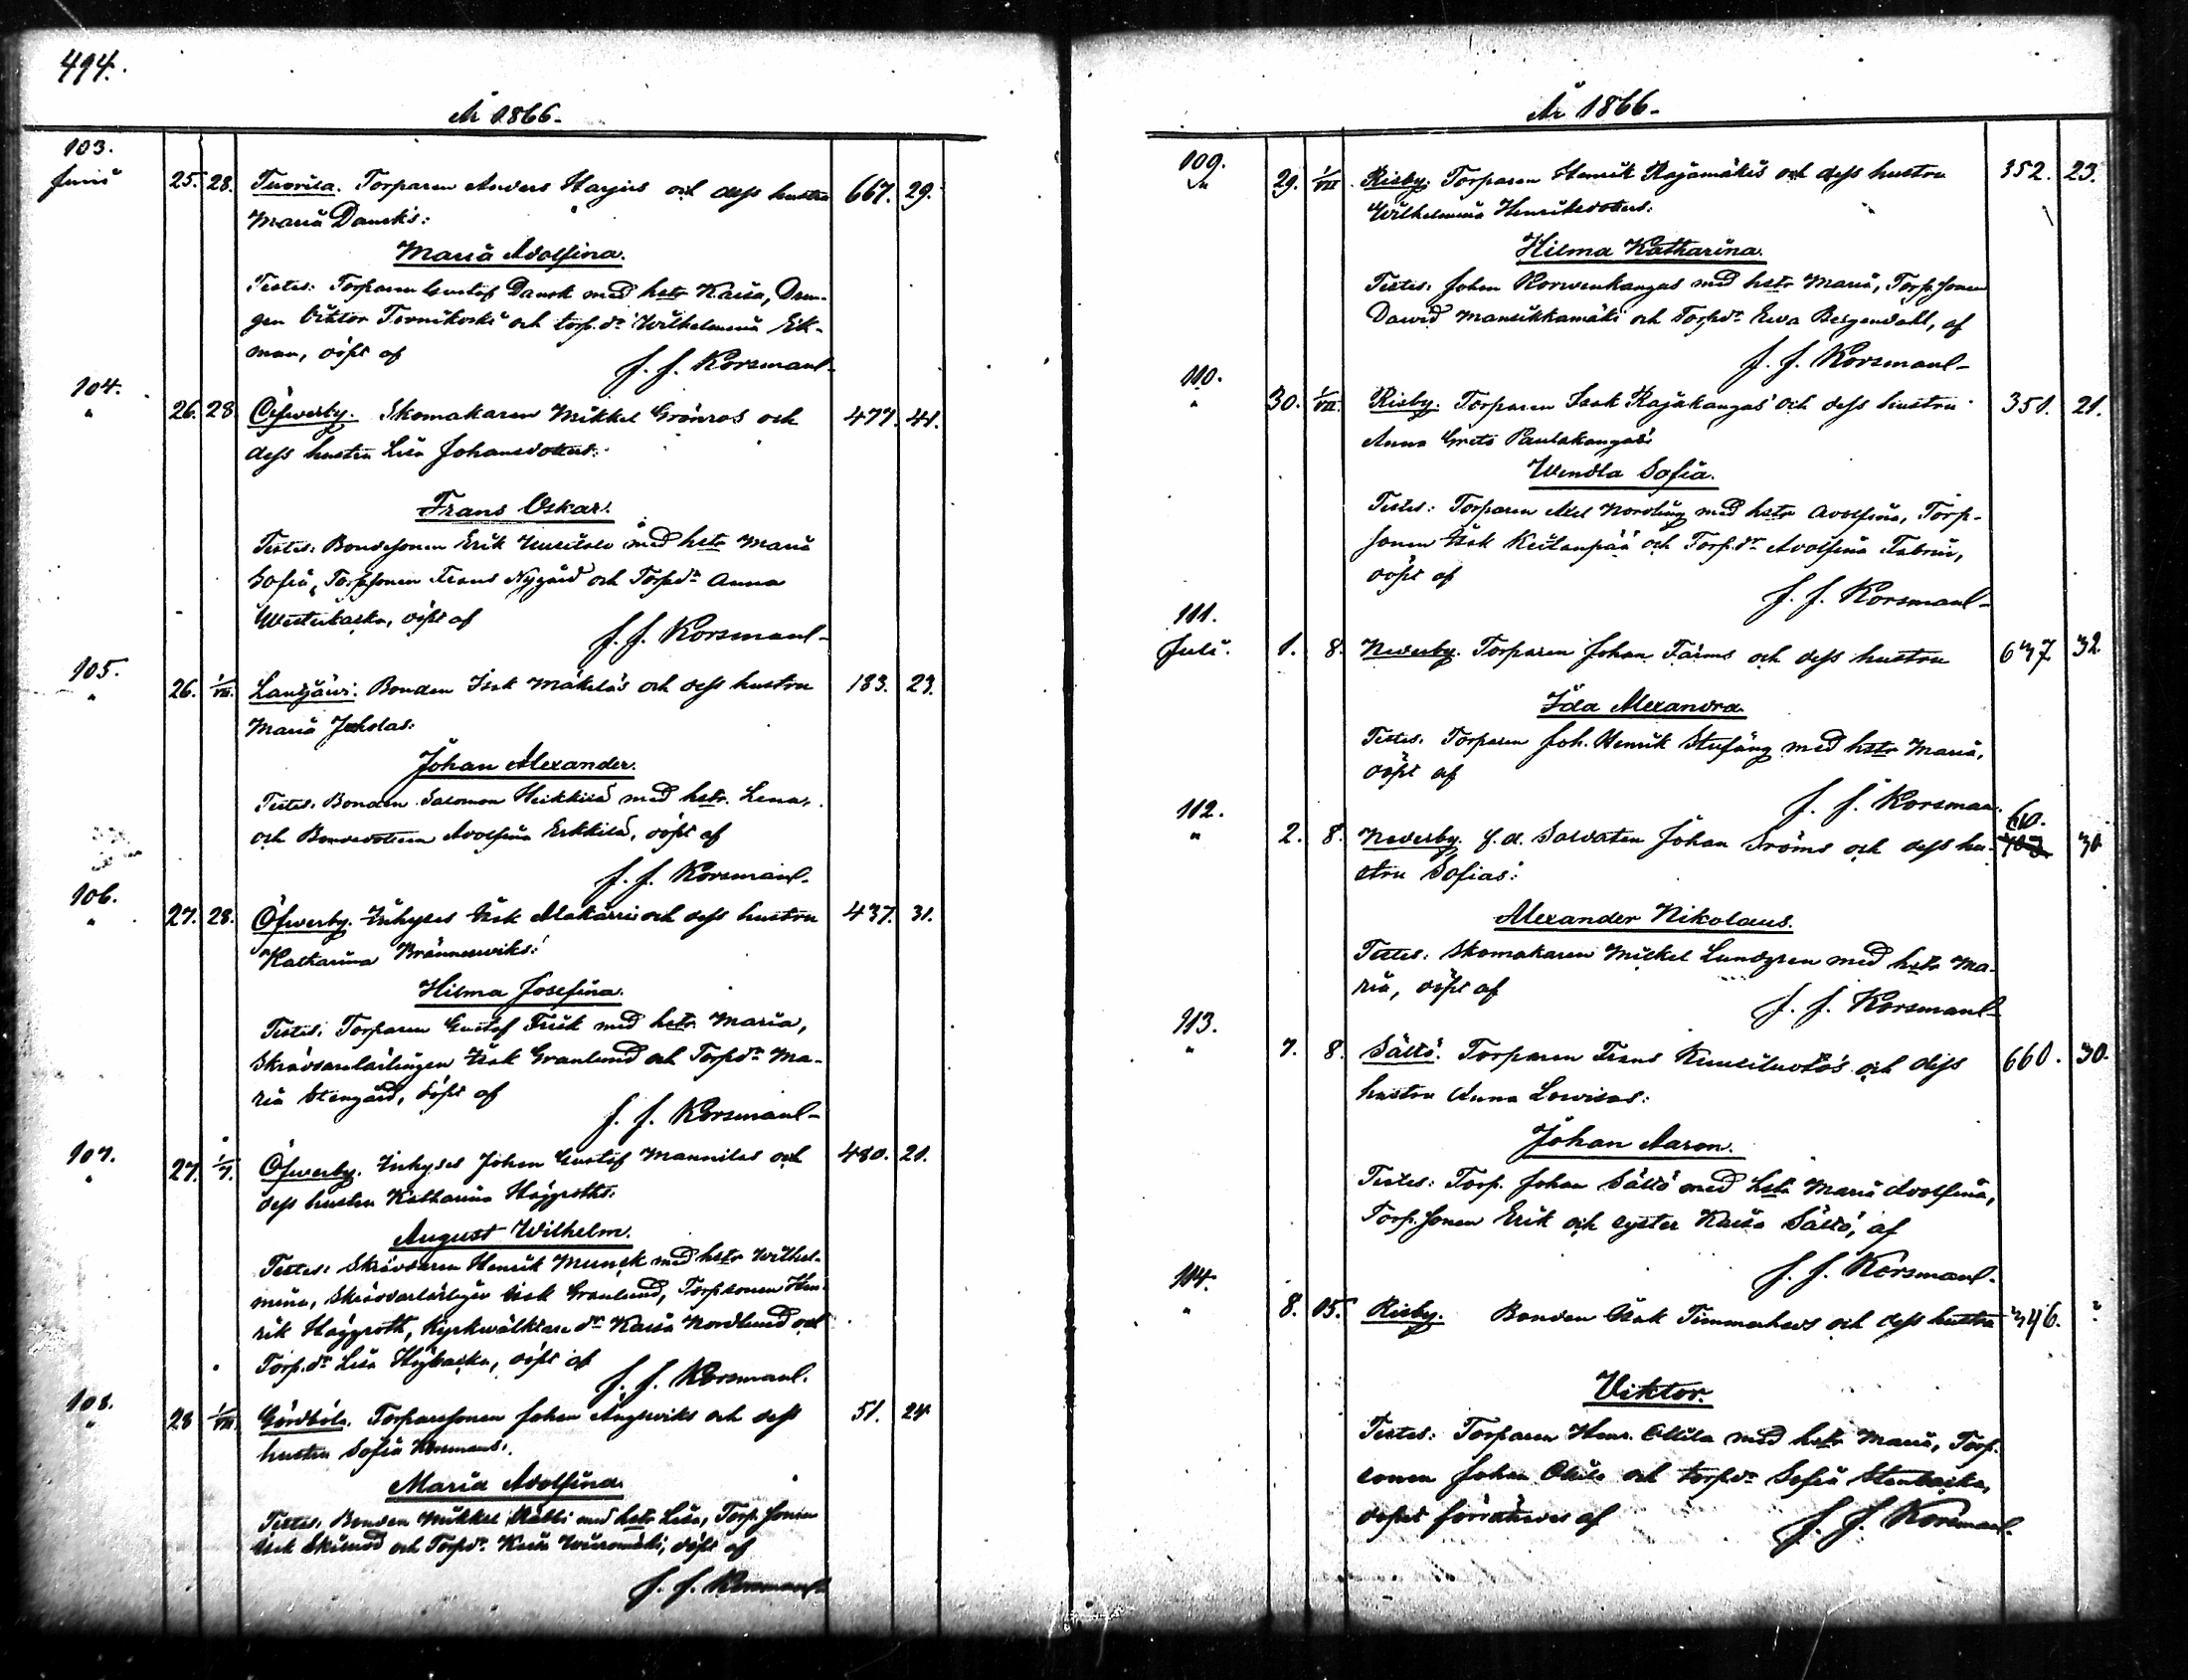 494.
År 1866.
103.
Junii 25. 28. Tuorila. Torparen Anders Harjus och dess hustru 667. 29.
Maria Dansks:
Maria Adolfina.
Testes: Torparen Gustaf Dansk med hstr Kaisa, Dren-
gen Viktor Tornikoski och torp.dr Wilhelmina Ek-
man, döpt af
J. J. Korsman
104.
" 26. 28 Öfwerby. Skomakaren Mikkel Grönros och 477. 41.
dess hustru Lisa Johansdotters:
Frans Oskar.
Testes: Bondesonen Erik med hstr Maria
Sofia, Torpsonen Frans Nygård och Torpdr Anna
Westerbacka, döpt af
J. J. Korsman
105.
" 26. 1/VII. Lanhjärwi. Bonden Isak Mäkeläs och dess hustru 183. 23.
Maria Jskolas:
Johan Alexander.
Testes: Bonden Salomon Heikkilä med hstr. Lena,
och Bondedottern Adolfina Erkkilä, döpt af
J. J. Korsman
106.
" 27. 28. Öfwerby. Inhyses Isak Alakärris och dess hustru 437. 31.
Katharina Brännerwiks:
Hilma Josefina.
Testes: Torparen Gustaf Frisk med hstr Maria,
Skräddarelärlingen Isak Granlund och Torpdr Ma-
ria Stengård, döpt af
J. J. Korsman
107.
" 27. 1/7. Öfwerby. Inhyses Johan Gustaf Mannilas och 480. 21.
dess hustru Katharina Höggroths:
August Wilhelm.
Testes: Skräddaren Henrik Munsk med hstr Wilhel-
mina, Skräddarlärlingen Isak Granlund, Torpsonen Hen-
rik Höggroth, Kyrkwäktare dr Kaisa Nordlund och
Torp.dr Lisa Högbacka, döpt af
J. J. Korsman
108.
" 28 1/VII. Gördböle. Torparesonen Johan Ängeswiks och dess 51. 24
hustru Sofia Korsmans:
Maria Adolfina.
Testes: Bonden Mikkel Rabbi med hstr Lisa, Torp.sonen
Isak Skilnad och Torpdr. Kaisa Wuoromäki, döpt af
J. J. Korsman
År 1866.
109.
" 29. 1/VII. Risby. Torparen Henrik Rajamäkis och dess hustru 352. 23.
Wilhelmina Henriksdotters:
Hilma Katharina.
Testes: Johan Korwenkangas med hstr Maria, Torp.sonen
Dawid Mansikkamäki och Torpdr Ewa Bergendahl, af
J. J. Korsman
110.
" 30. 1/VII. Risby. Torparen Isak Rajakangas och dess hustru 351. 21.
Anna Greta Paulakangas:
Wendla Sofia.
Testes: Torparen Axel Nordling med hstr Adolfina, Torp-
sonen Isak Keitanpää och Torp.dr Adolfina Fabrin,
döpt af
J. J. Korsman
111.
Juli. 1. 8. Nederby. Torparen Johan Farms och dess hustru 637 32
Ida Alexandra.
Testes: Torparen Joh. Henrik Stufäng med hstr Maria,
döpt af
J. J. Korsman
112. 60.
" 2. 8. Nederby. f.d. Soldaten Johan Ströms och dess hu- 30
stru Sofias:
Alexander Nikolaus.
Testes: Skomakaren Mickel Lundgren med hstr Ma-
ria, döpt af
J. J. Korsman
113.
" 7. 8. Sältö. Torparen Frans Kuusiluotos och dess 660. 30.
hustru Anna Lowisas:
Johan Aaron.
Testes: Torp. Johan Sältö med hstr Maria Adolfina,
Torp.sonen Erik och syster Kaisa Sältö, af
J. J. Korsman
114.
" 8. 15. Risby. Bonden Isak Timmerheds och dess hustru 346. ?
Viktor.
Testes: Torparen Henr. Ollila med hstr Maria, Torp-
sonen Johan Ollila och torpdr Sofia Stenbacka,
döpt af
J. J. Korsman